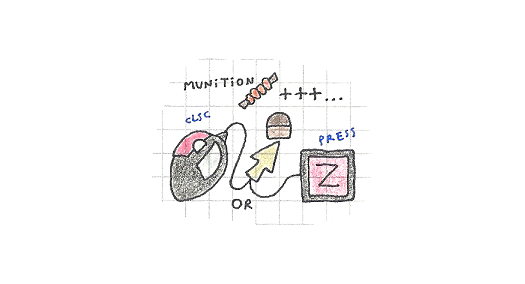 MUNITION
+++...
CLSC
PRESS
Z
OR